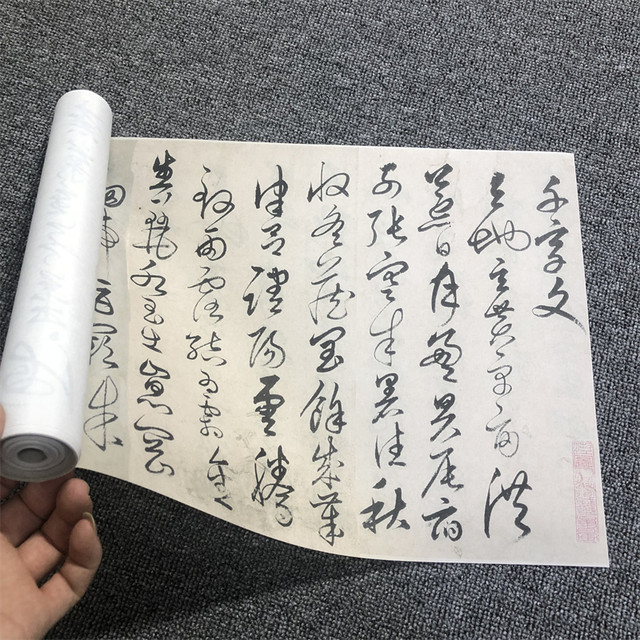 千字文
天地玄黃宇宙洪
荒日月盈昃辰宿
列張寒來暑往秋
收冬藏閏餘成歲
律呂調陽雲騰
致雨露結為霜金
生麗水玉出崑岡
劍號巨闕珠